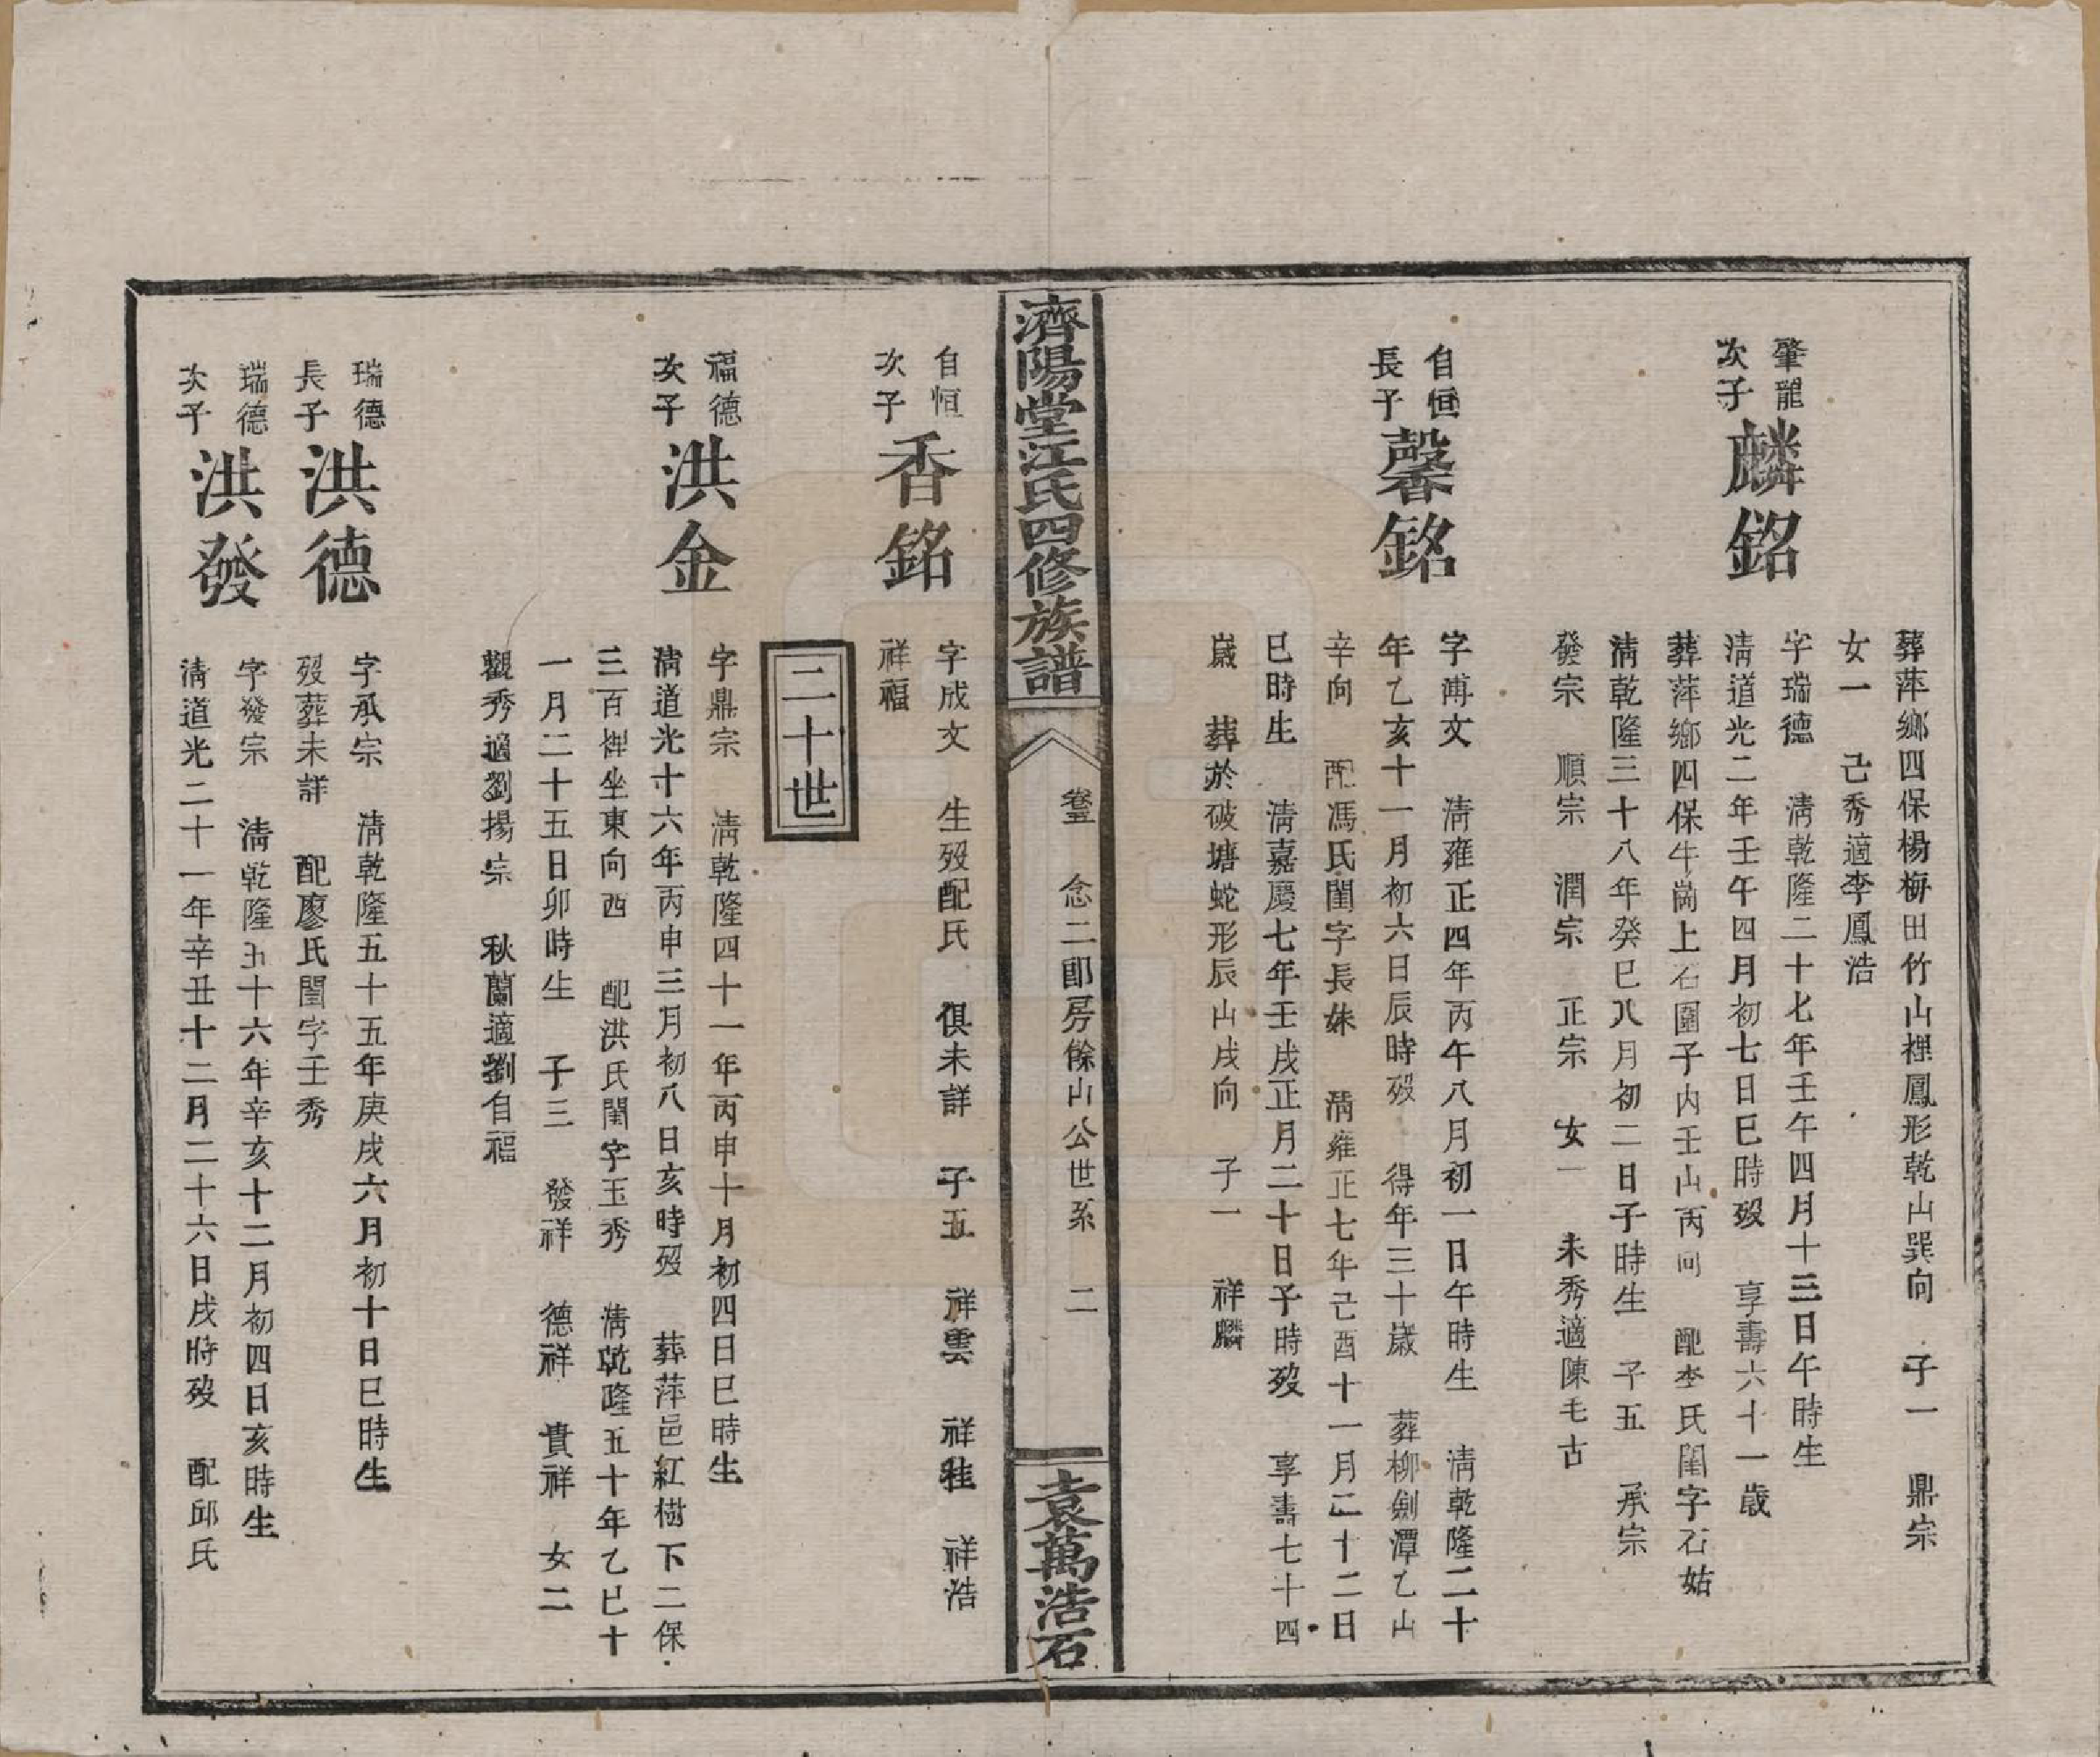 葬萍鄉四保楊梅田竹山裡鳳形乾山巽向　子一　鼎宗
女一　己秀適李鳳浩
肇龍
次子
麟銘
字瑞德　清乾隆二十七年壬午四月十三日午時生
清道光二年壬午四月初七日巳時歿　享壽六十一歲
葬萍鄉四保牛崗上石圍子內壬山丙向　配李氏閨字石姑
清乾隆三十八年癸巳八月初二日子時生　子五　承宗
發宗　順宗　潤宗　正宗　女一　未秀適陳毛古
自恒
長子
馨銘
字溥文　清雍正四年丙午八月初一日午時生　清乾隆二十
年乙亥十一月初六日辰時歿　得年三十歲　葬柳劍潭乙山
辛向　配馮氏閨字長妹　清雍正七年己酉十一月二十二日
巳時生　清嘉慶七年壬戌正月二十日子時歿　享壽七十四
歲　葬於破塘蛇形辰山戌向　子一　祥麟
濟陽堂江氏四修族譜
卷三　念二郎房餘山公世系　二
袁萬浩石
自恒
次子
香銘
字成文　生歿配氏　俱未詳　子五　祥雲　祥桂　祥浩
祥福
二十世
福德
次子
洪金
字鼎宗　清乾隆四十一年丙申十月初四日巳時生
清道光十六年丙申三月初八日亥時歿　葬萍邑紅樹下二保
三百裡坐東向西　配洪氏閨字玉秀　清乾隆五十年乙巳十
一月二十五日卯時生　子三　發祥　德祥　貴祥　女二
觀秀適劉揚宗　秋蘭適劉自福
瑞德
長子
洪德
字承宗　清乾隆五十五年庚戌六月初十日巳時生
歿葬未詳　配廖氏閨字壬秀
瑞德
次子
洪發
字發宗　清乾隆五十六年辛亥十二月初四日亥時生
清道光二十一年辛丑十二月二十六日戌時歿　配邱氏